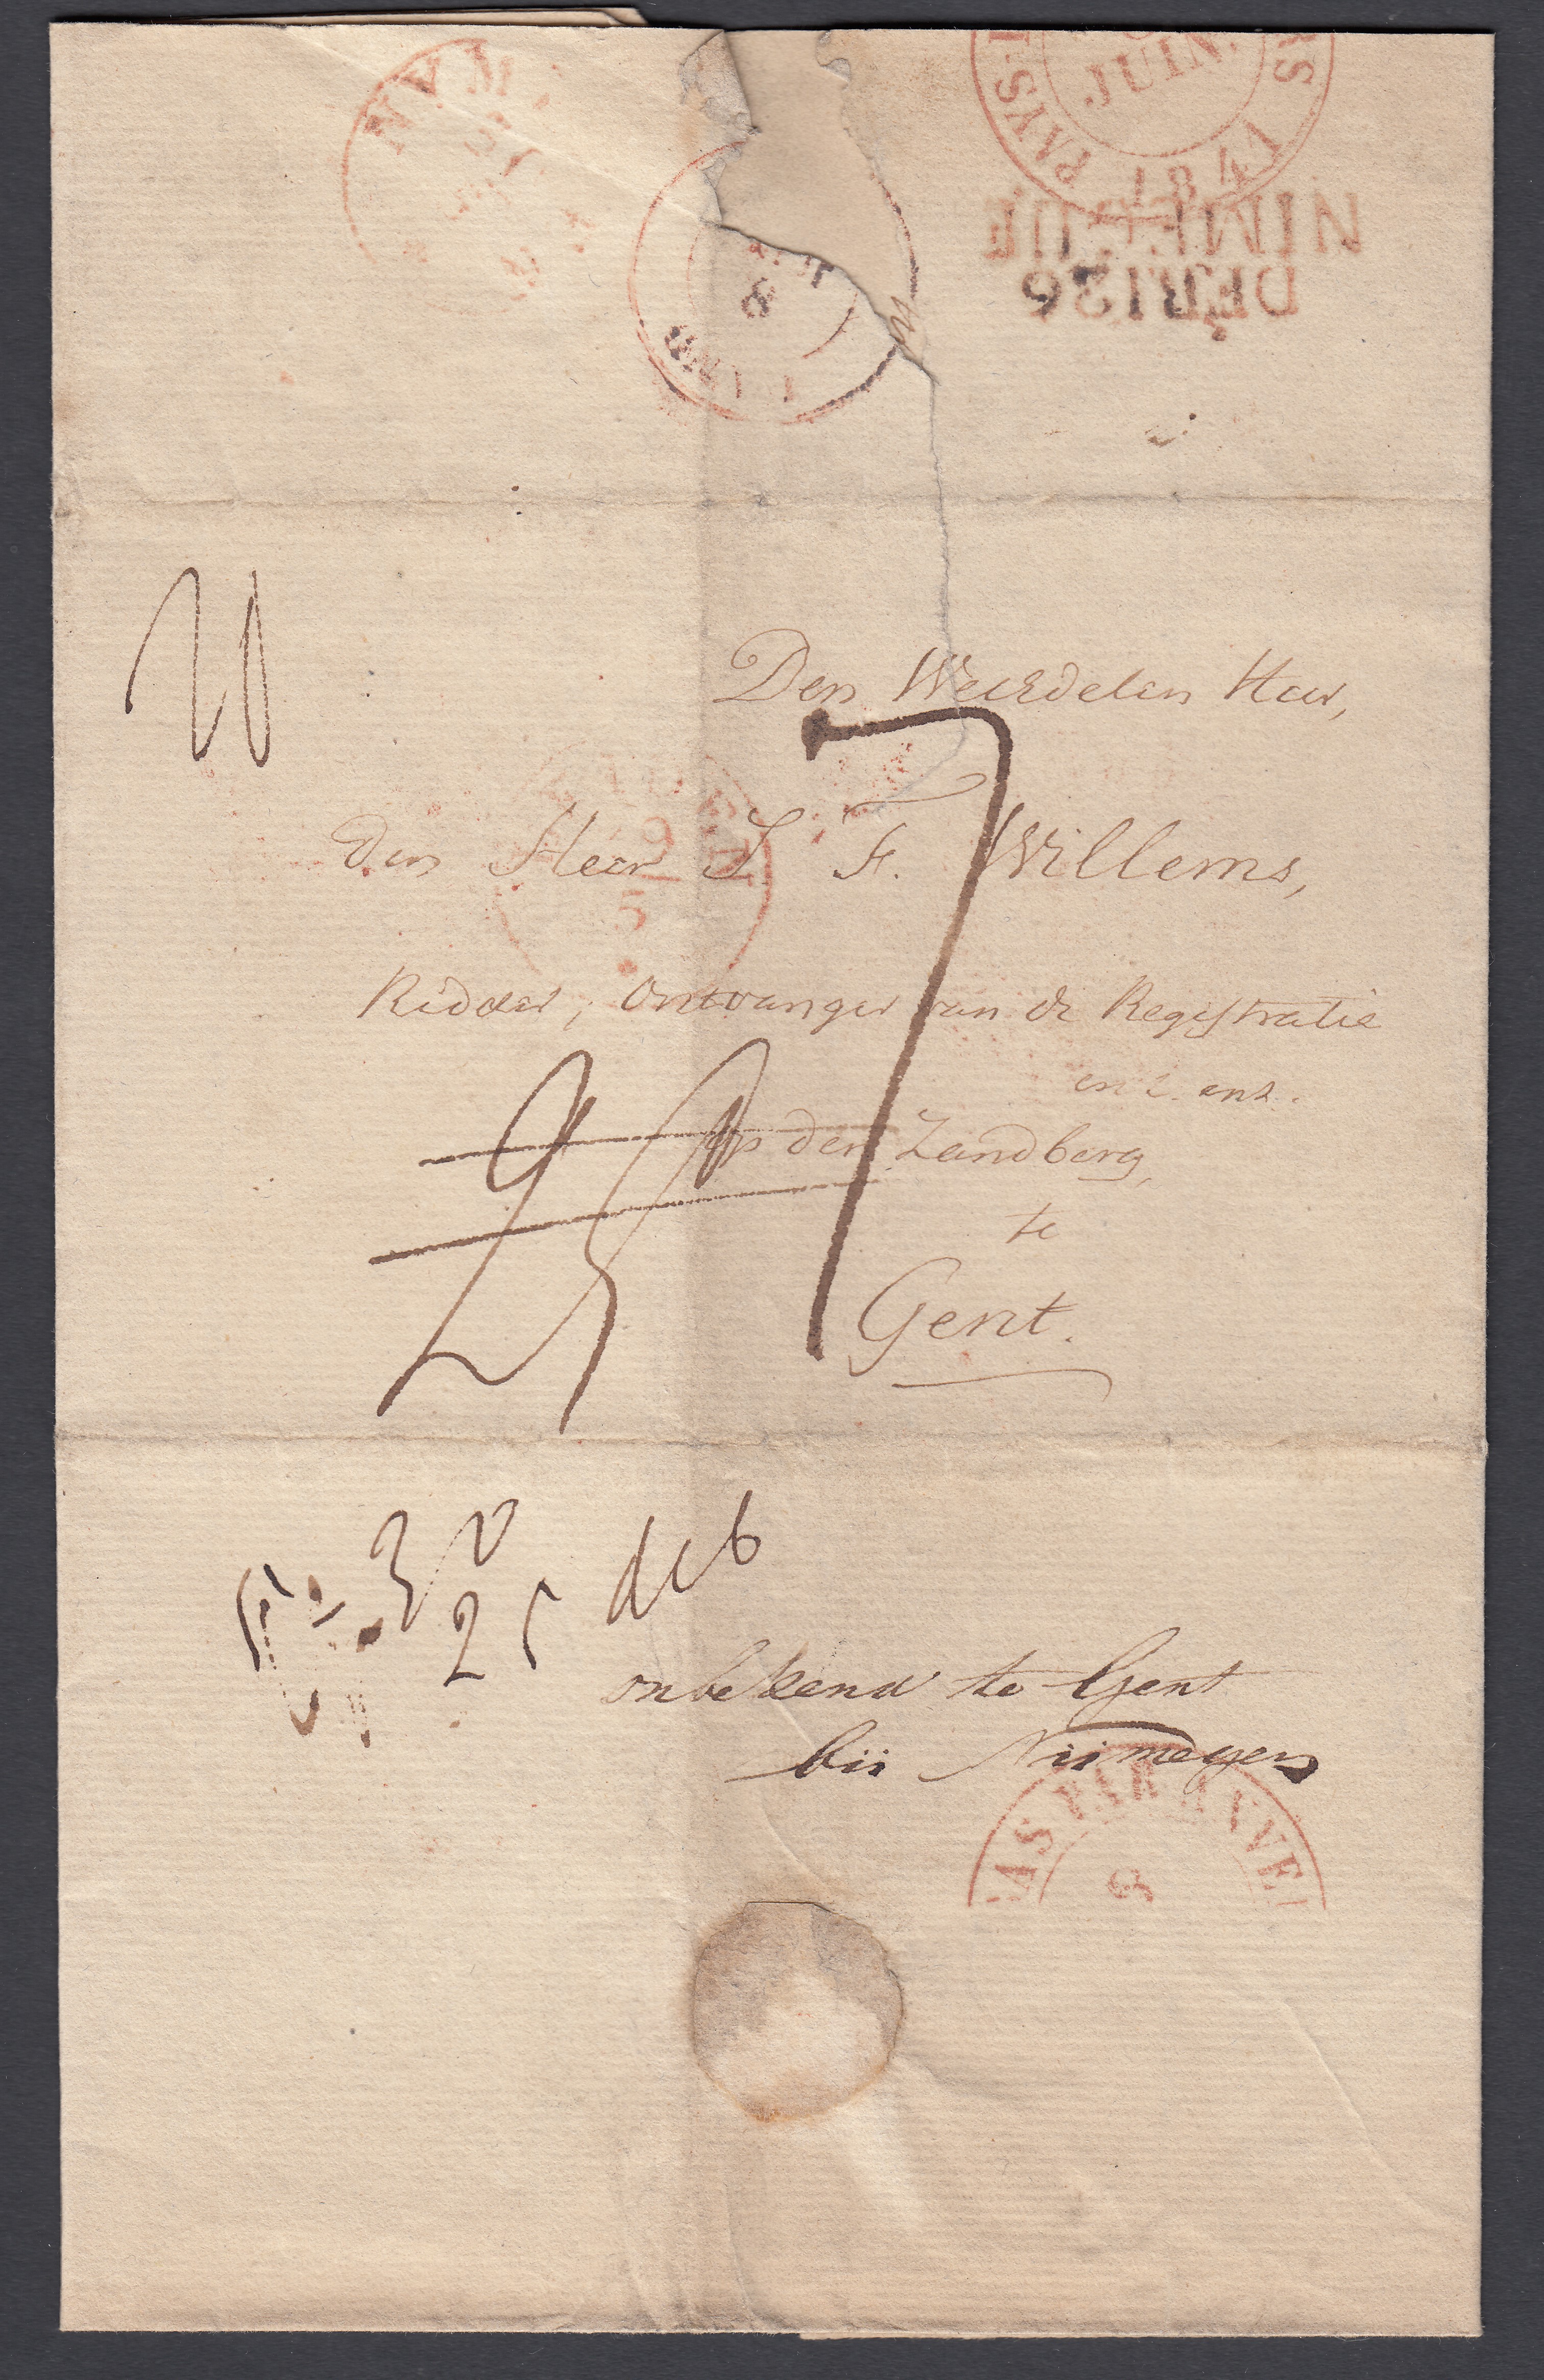 NYM
JUIN.
PAYS-
1841
NIM UE
DEB.126
8
20
Den WelEdelen Heer,
den Heer J. F. Willems,
Ridder, Ontvanger van de Registratie
enz. enz.
Op den Zandberg,
te
Gent.
7
9
5
25
30
25 deb
onbekend te Gent
bii Niimegen
AS PAR ANVE
8